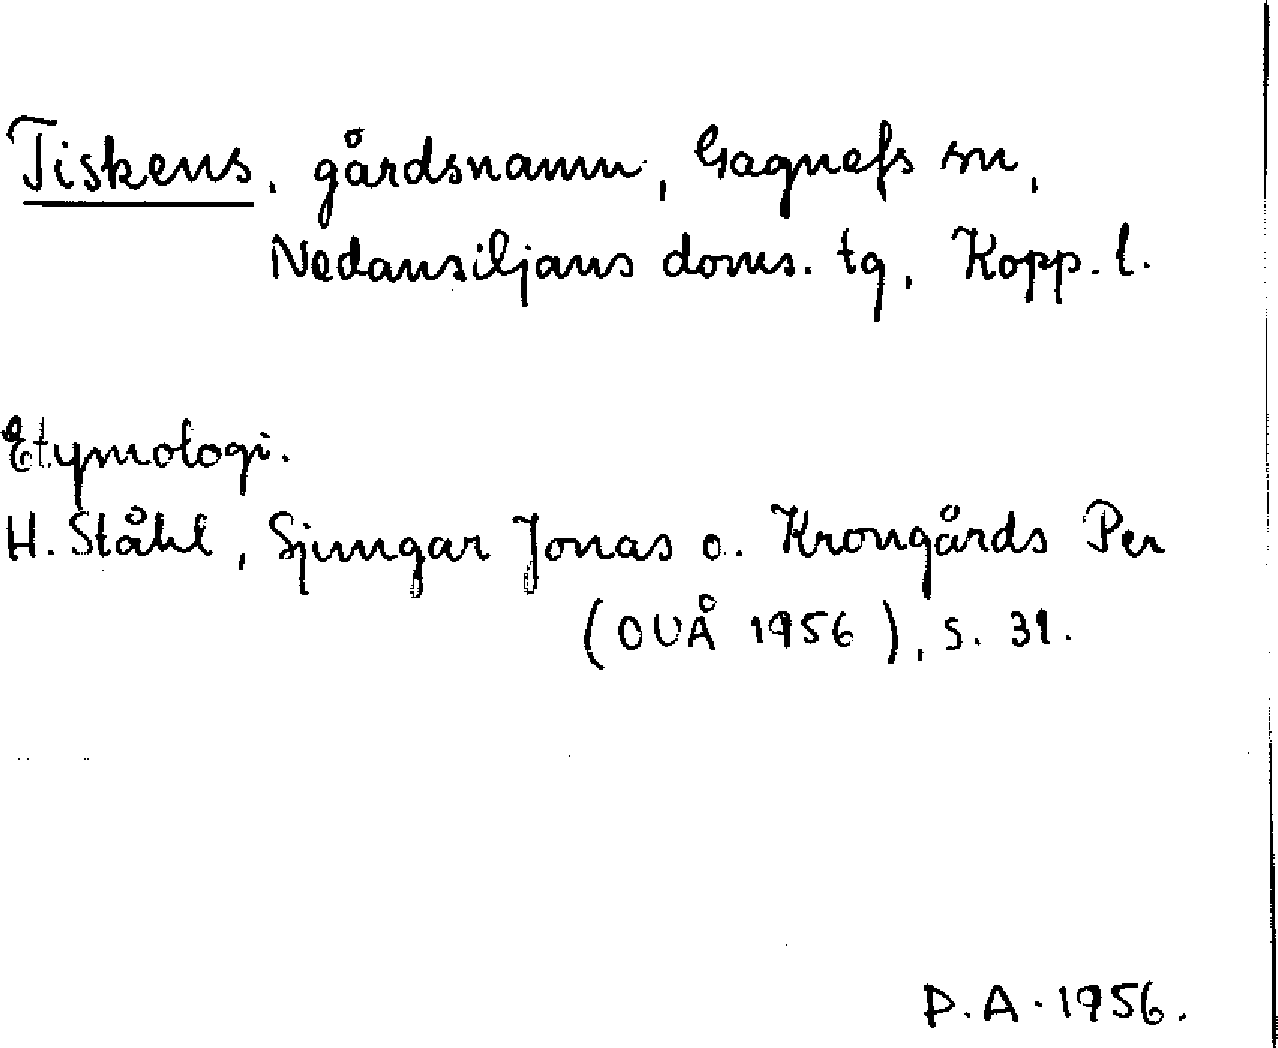 Tiskens, gårdsnamn, Gagnefs sn,
Nedansiljans doms. tg, Kopp. l.
Etymologi.
H. Ståhl, Sjungar Jonas o. Krongårds Per
(OUÅ 1956), s. 31.
P.A. 1956.